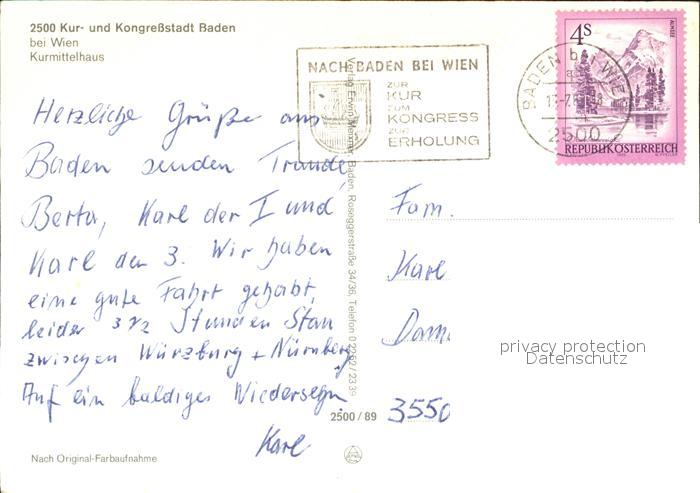 2500 Kur- und Kongreßstadt Baden
bei Wien
Kurmittelhaus
NACH BADEN BEI WIEN
ZUR
KUR
ZUM
KONGRESS
ZUR
ERHOLUNG
BADEN bei WIEN
2500
4S
ALMSEE
REPUBLIK ÖSTERREICH
Herzliche Grüße aus
Baden senden Traude,
Berta, Karl der I und
Karl den 3. Wir haben
eine gute Fahrt gehabt,
leider 3 1/2 Stunden Stau
zwischen Würzburg + Nürnberg.
Auf ein baldiges Wiedersehn.
Karl
Verlag Erwin Baden, Roseggerstraße 34/36, Telefon 0 22 52 / 23 39
Fam.
Karl
Dam
3550
2500/89
Nach Original-Farbaufnahme
privacy protection
Datenschutz